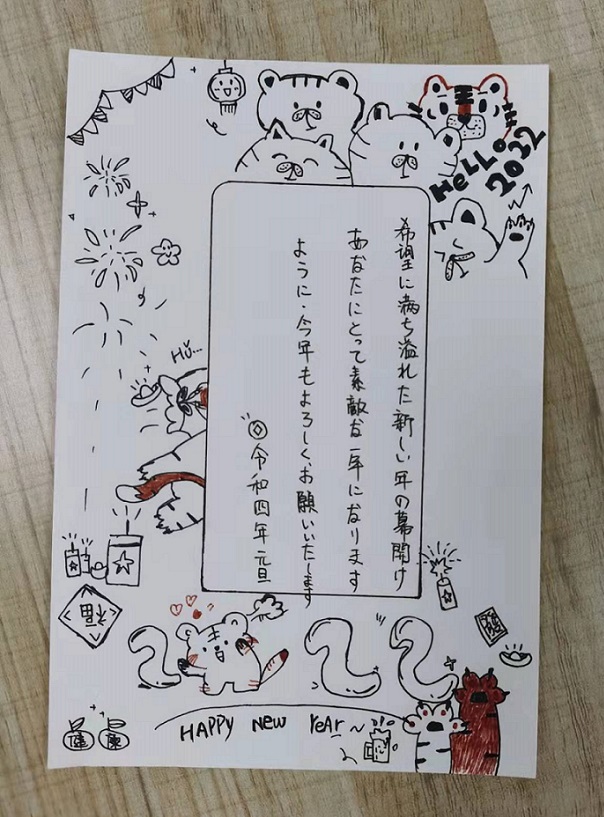 HELLO
2022
希望に満ち溢れた新しい年の幕開け
あなたにとって素敵な一年になります
ように・今年もよろしく、お願いいたします
令和四年元旦
Hu...
福
健
康
HAPPY New YeAr~